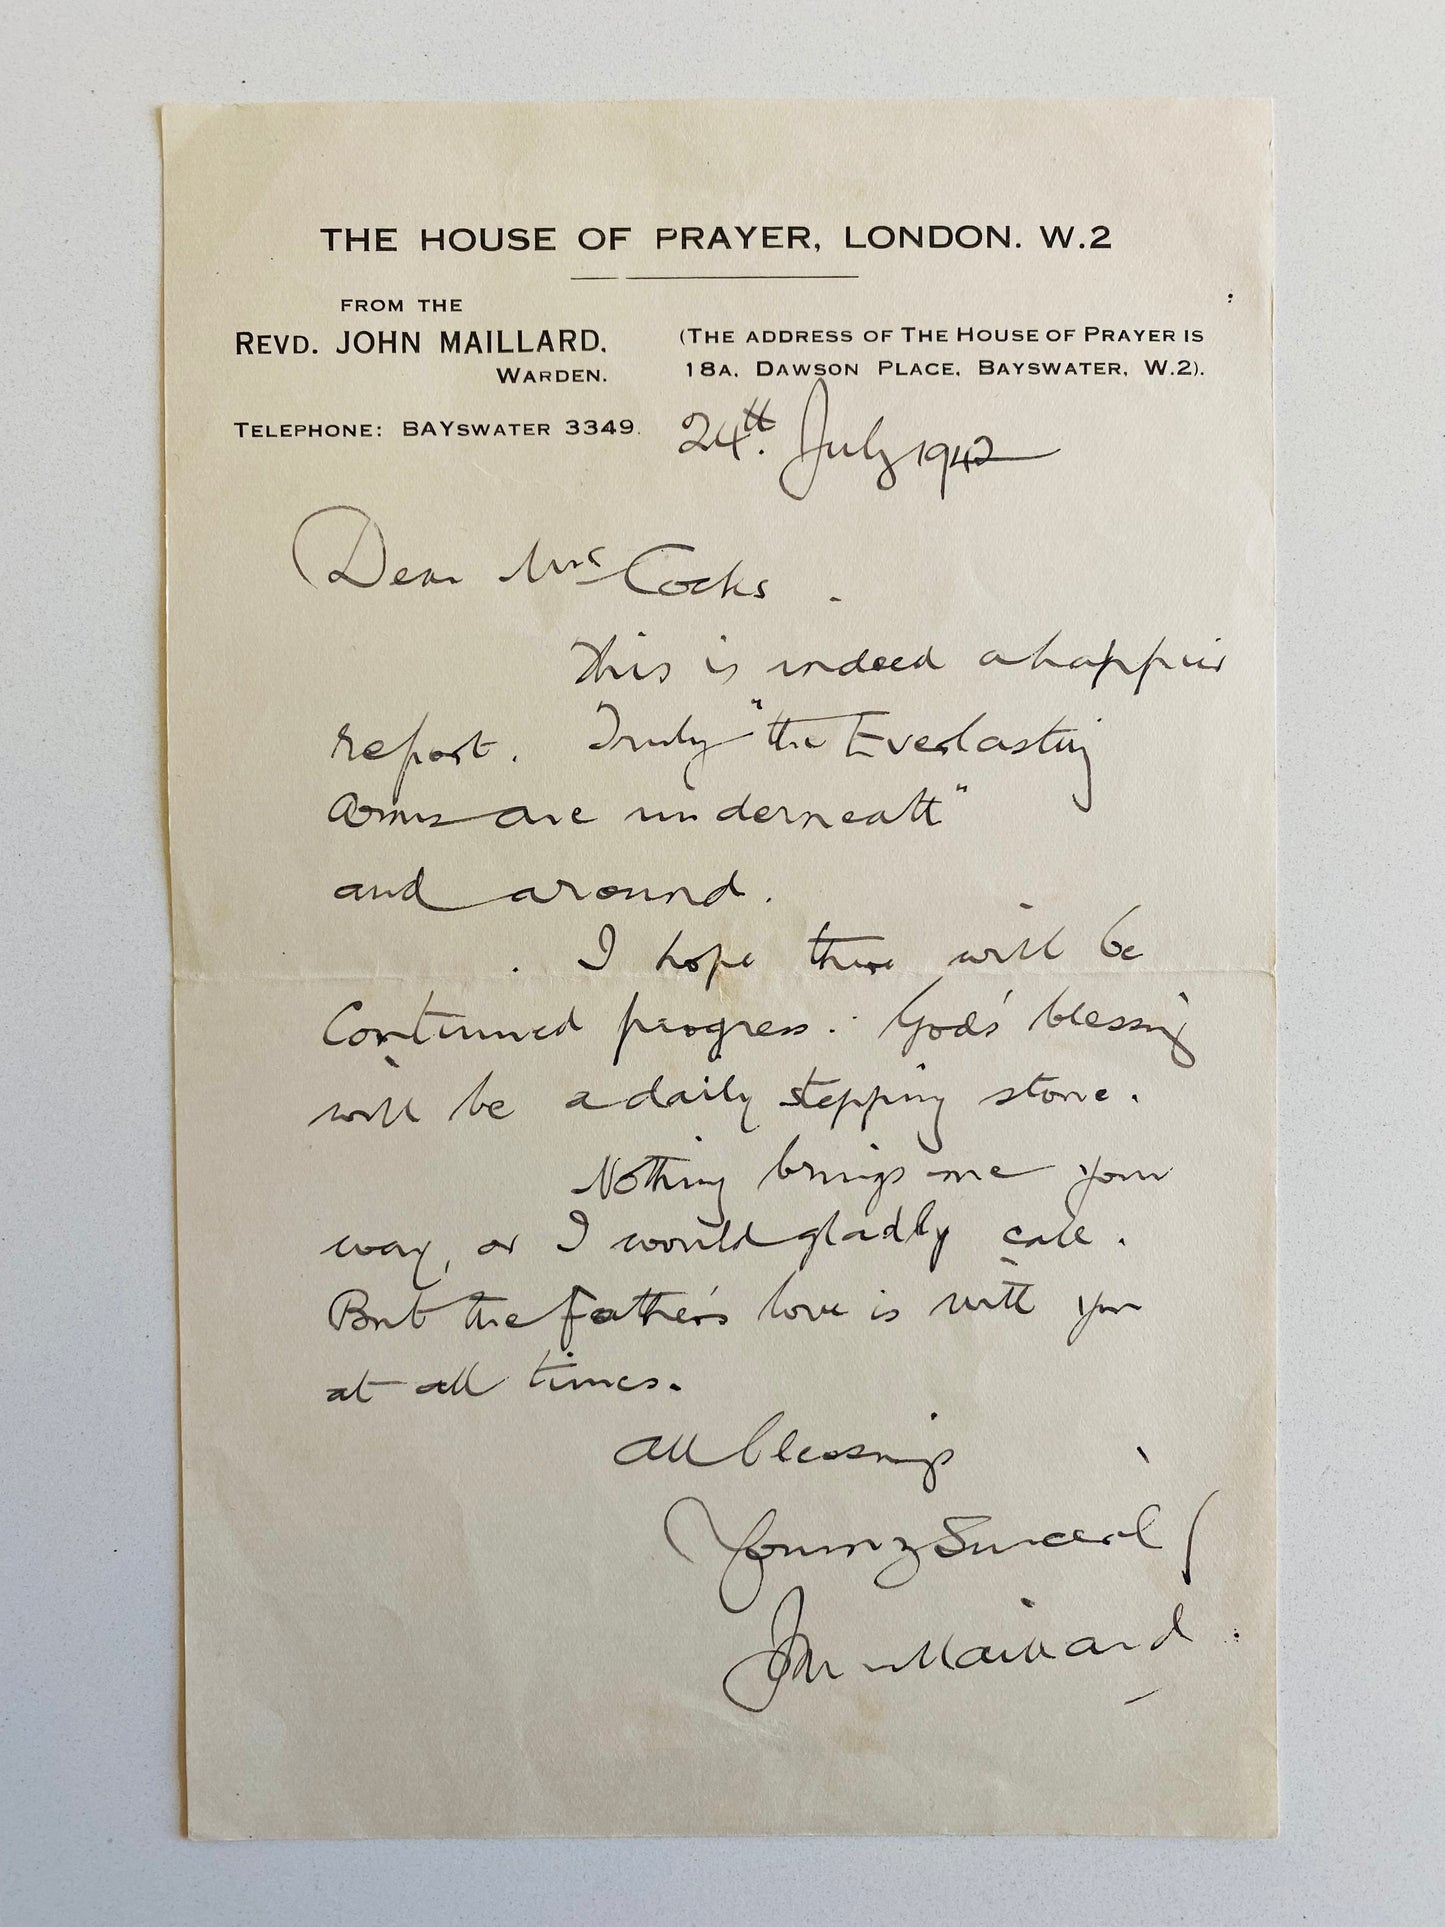 THE HOUSE OF PRAYER, LONDON. W.2
FROM THE
REVD. JOHN MAILLARD.
WARDEN.
(THE ADDRESS OF THE HOUSE OF PRAYER IS
18A. DAWSON PLACE. BAYSWATER, W.2).
TELEPHONE: BAYSWATER 3349.
24th. July 1942
Dear Mrs Cocks.
This is indeed a happier
report. Truly "the Everlasting
Arms are underneath"
and around.
I hope there will be
Continued progress. God's blessing
will be a daily stepping stone.
Nothing brings me your
way, or I would gladly call.
But the Father's love is with you
at all times.
All blessings
Yours Sincerely
John Maillard